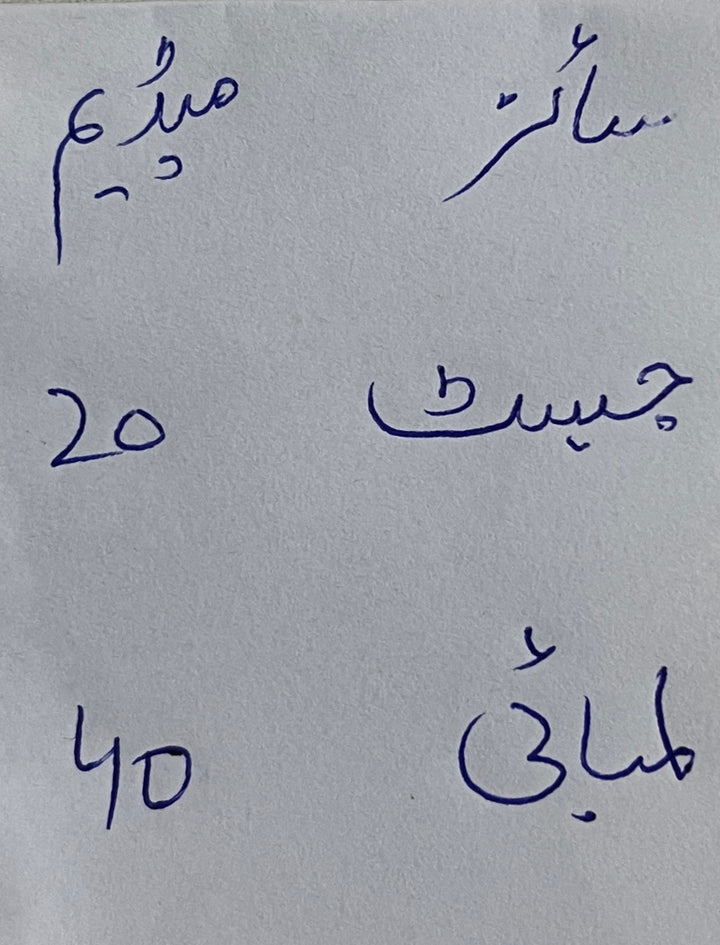 سائز میڈیم
چیسٹ 20
لمبائی 40